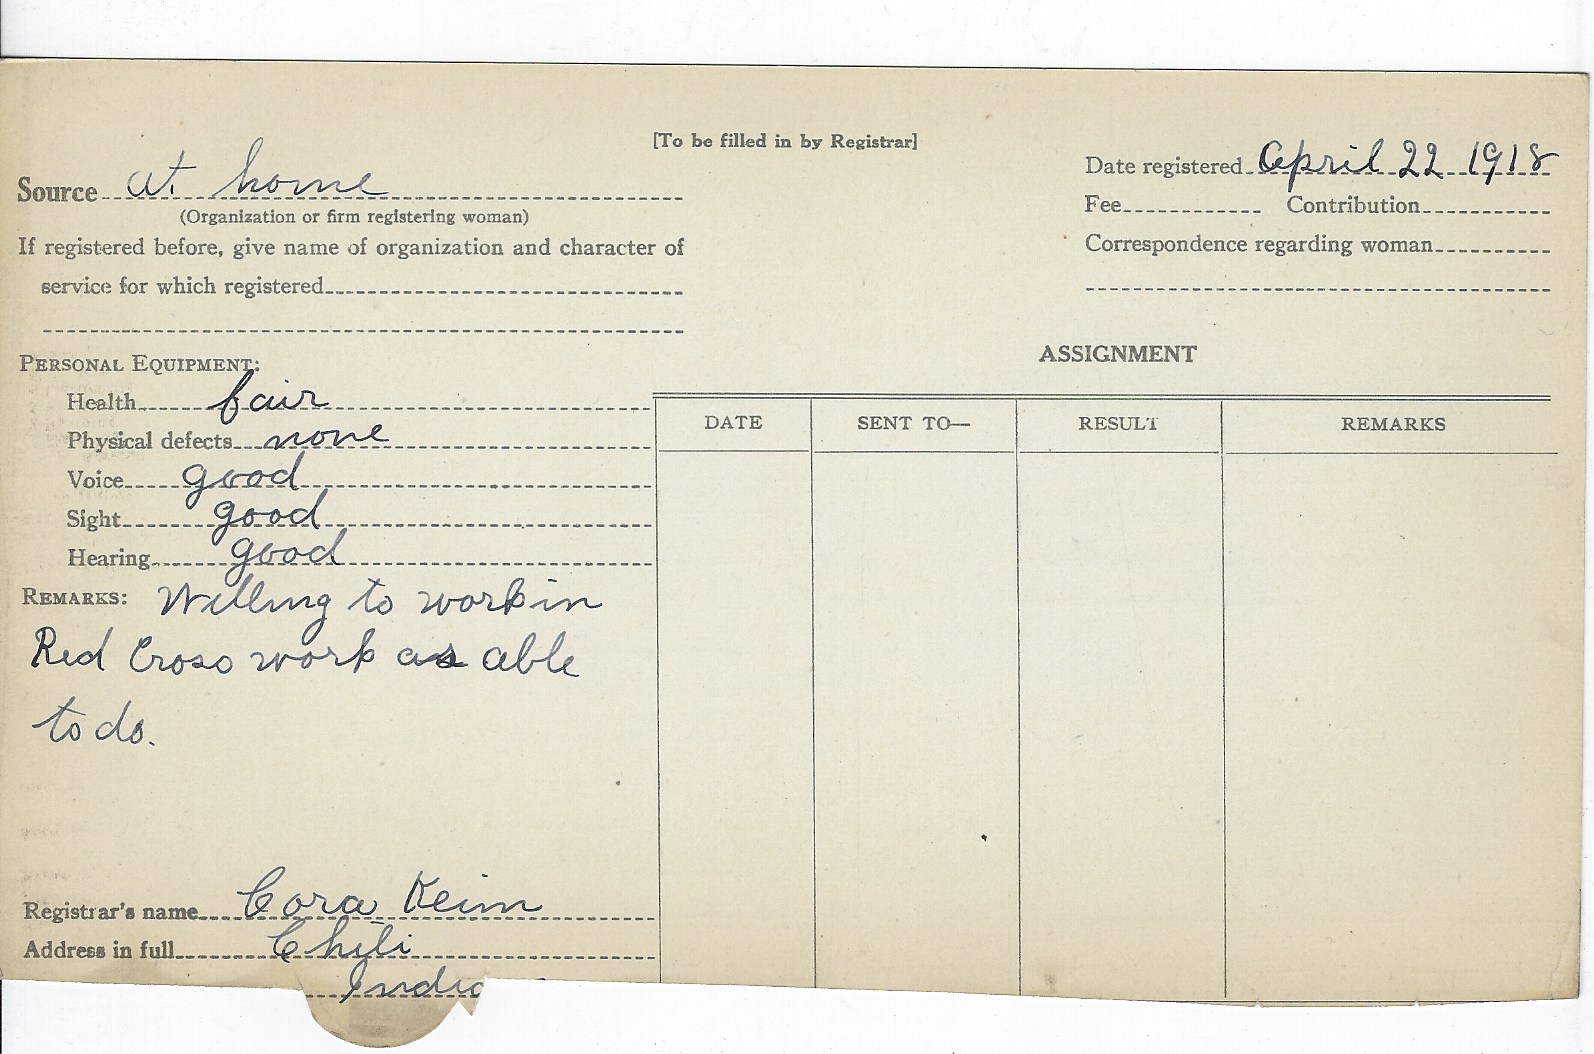 [To be filled in by Registrar]
Source at home
(Organization or firm registering woman)
If registered before, give name of organization and character of
service for which registered
Date registered April 22 1918
Fee Contribution
Correspondence regarding woman
PERSONAL EQUIPMENT:
Health fair
Physical defects none
Voice good
Sight good
Hearing good
REMARKS: Willing to work in
Red Cross work as able
to do.
Registrar's name Cora Keim
Address in full Chili
ASSIGNMENT
DATE SENT TO— RESULT REMARKS